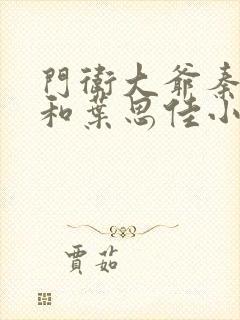 門衛大爺秦
和葉思佳小
賈茹